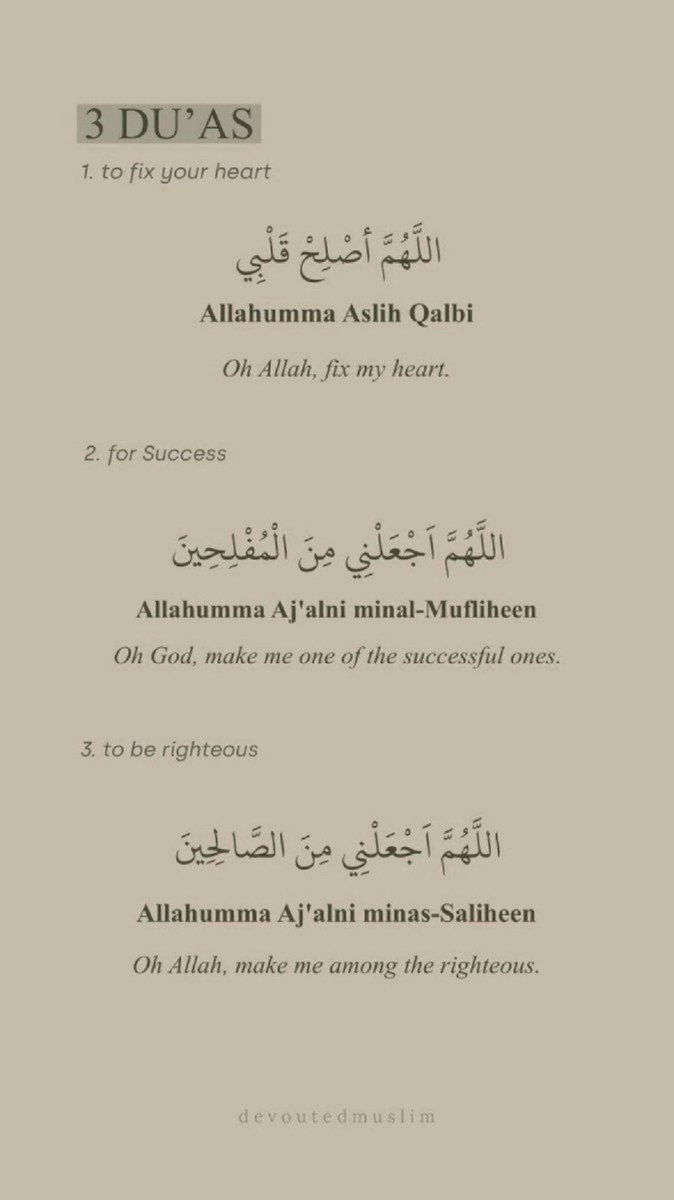 3 DU’AS
1. to fix your heart
اللَّهُمَّ أَصْلِحْ قَلْبِي
Allahumma Aslih Qalbi
Oh Allah, fix my heart.
2. for Success
اللَّهُمَّ اَجْعَلْنِي مِنَ الْمُفْلِحِينَ
Allahumma Aj'alni minal-Mufliheen
Oh God, make me one of the successful ones.
3. to be righteous
اللَّهُمَّ اَجْعَلْنِي مِنَ الصَّالِحِينَ
Allahumma Aj'alni minas-Saliheen
Oh Allah, make me among the righteous.
devoutedmuslim